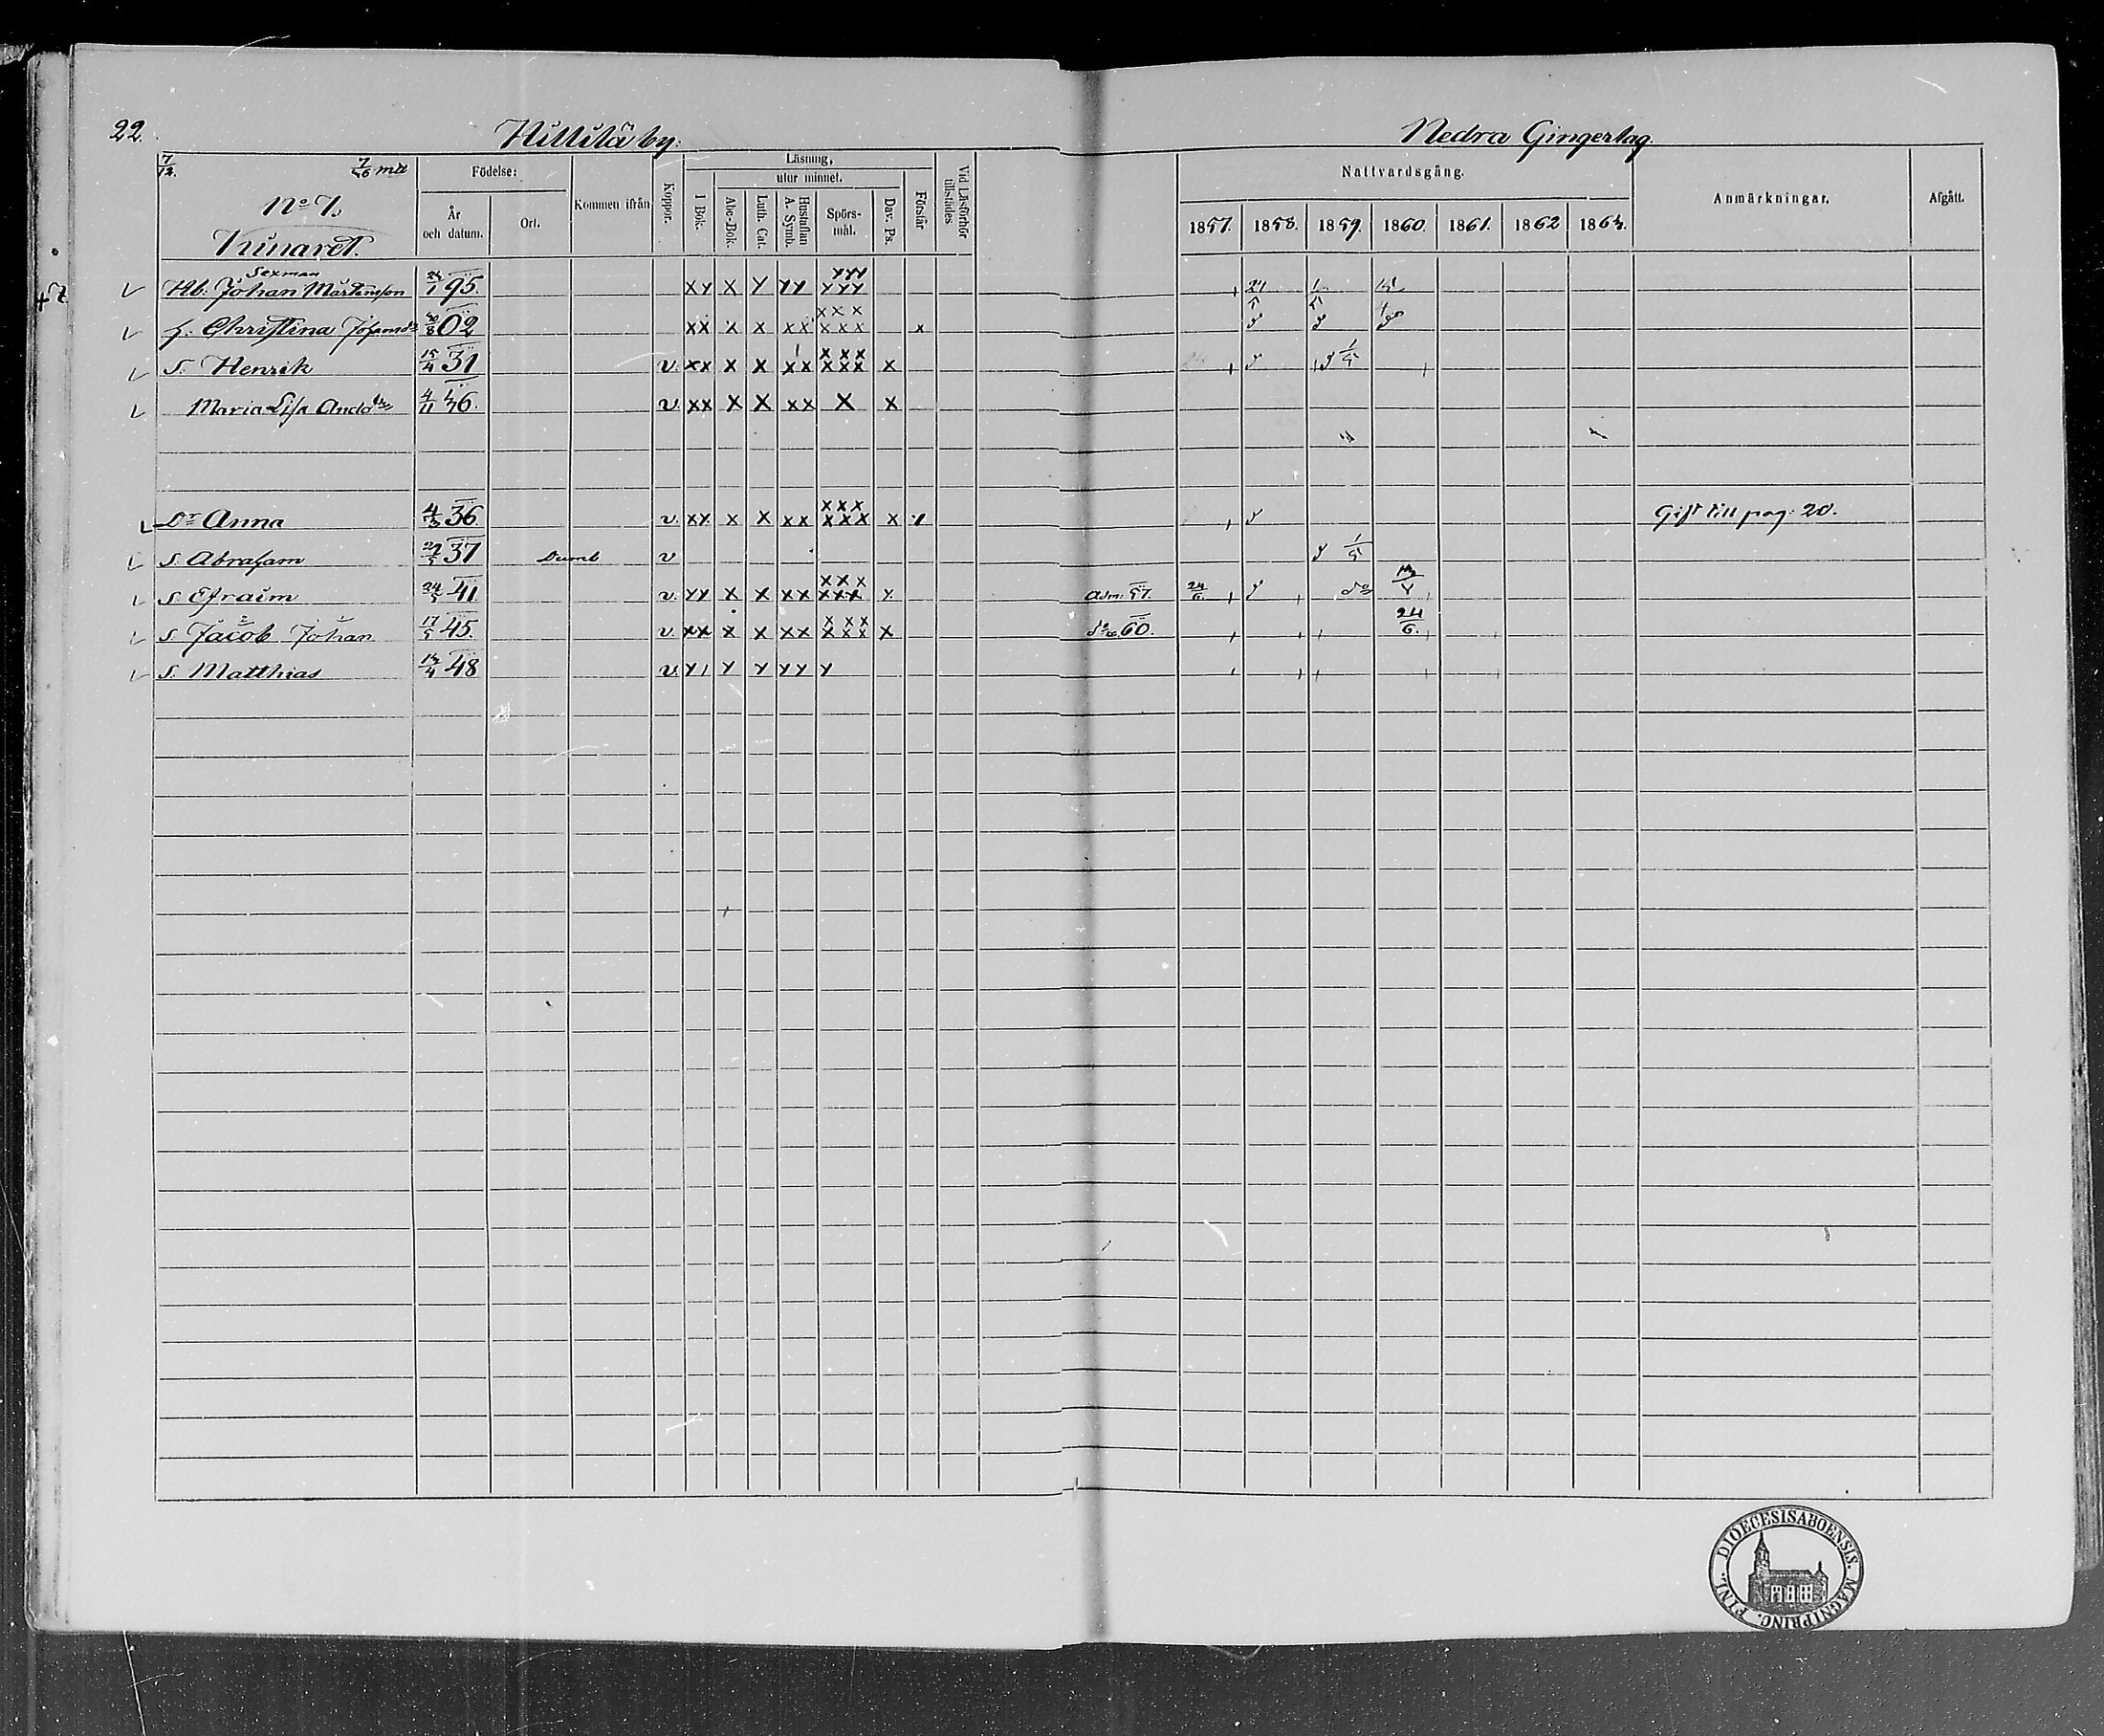 22. Hittilä by. Nedra Gingertag.
7/12. 7/46 mtl
No 7.
Födelse:
År och datum.
Ort.
Kommen ifrån
Koppor.
Läsning,
I Bok.
utur minnet.
Abc-Bok.
Luth. Cat.
Hustaflan A. Symb.
Spörs-mål.
Dav. Ps.
Förstår
Vid Läsförhör tillstädes
Nattvardsgång.
1857. 1858. 1859. 1860. 1861. 1862 1863.
Anmärkningar.
Afgått.
Sexman
Hb. Johan Mårtensson 95. xx x x xx xxx xxx
h. Christina Johansdr 02 xx x x xx xxx xxx x
S. Henrik 15/4 31 v. xx x x xx xxx xxx x
Maria Lisa Andsdr 4/11 46. v. xx x x xx x x
Dr Anna 36. v. xx x x xx xxx xxx x Gift till pag. 20.
S. Abraham 37 Dumb v
S. Efraim 24/5 41 v. xx x x xx xxx xxx x Adm. 57. 24/6
S. Jacob Johan 17/5 45. v. xx x x xx xxx xxx x do 60. 24/6.
S. Matthias 48 v.
DIOECESIS ABOENSIS. MAGNI PRINC. FINL.